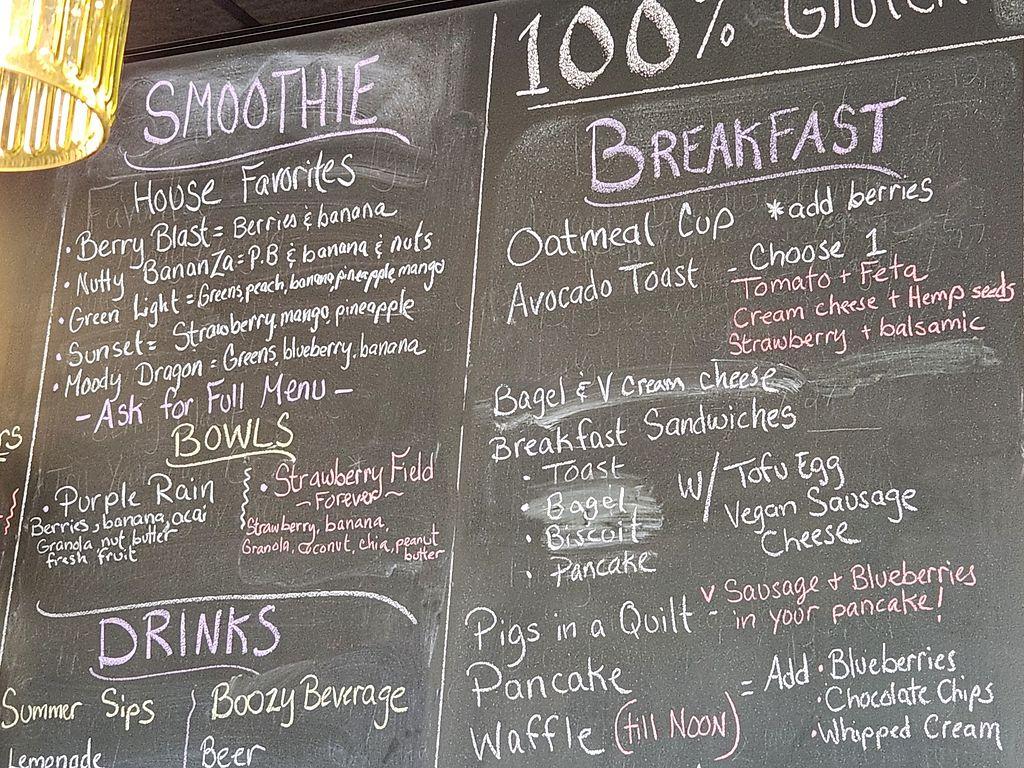 SMOOTHIE
House Favorites
• Berry Blast = Berries & banana
• Nutty BananZa = P.B & banana & nuts
• Green Light = Greens, peach, banana, pineapple, mango
• Sunset = Strawberry, mango, pineapple
• Moody Dragon = Greens, blueberry, banana
- Ask for Full Menu -
BOWLS
• Purple Rain
Berries, banana, acai
Granola, nut butter
fresh fruit
• Strawberry Field
~ Forever ~
Strawberry, banana,
Granola, coconut, chia, peanut
butter
DRINKS
Summer Sips
Lemonade
Boozy Beverage
Beer
100%
BREAKFAST
Oatmeal Cup *add berries
Avocado Toast - Choose 1
Tomato + Feta
Cream cheese + Hemp seeds
Strawberry + balsamic
Bagel & V Cream cheese
Breakfast Sandwiches
• Toast
• Bagel
• Biscuit
• Pancake
w/ Tofu Egg
Vegan Sausage
Cheese
Pigs in a Quilt - V Sausage + Blueberries
in your pancake!
Pancake
Waffle (till NOON)
= Add • Blueberries
• Chocolate Chips
• Whipped Cream